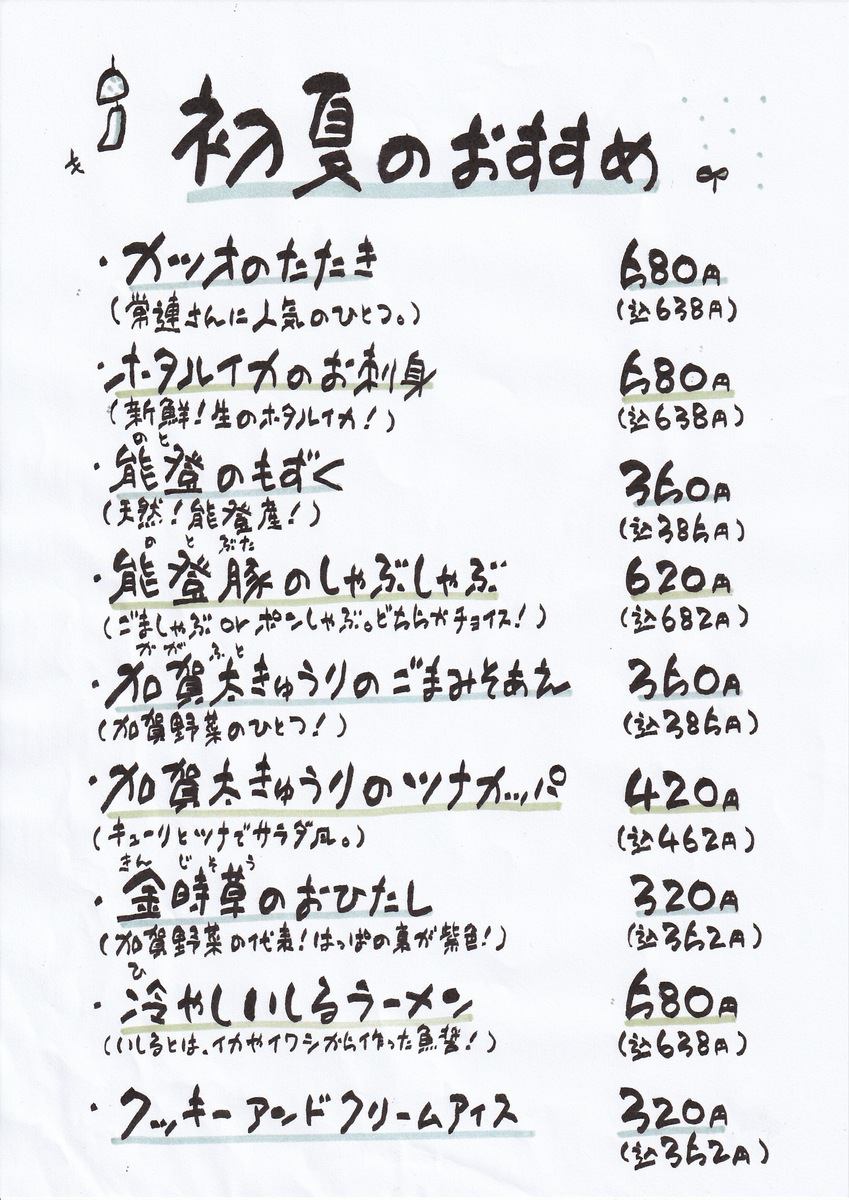 初夏のおすすめ
・カツオのたたき 580円
(常連さんに人気のひとつ。) (込638円)
・ホタルイカのお刺身 580円
(新鮮!生のホタルイカ!) (込638円)
のと
・能登のもずく 350円
(天然!能登産!) (込385円)
のとぶた
・能登豚のしゃぶしゃぶ 620円
(ごましゃぶ or ポンしゃぶ。どちらかチョイス!) (込682円)
かがふと
・加賀太きゅうりのごまみそあえ 350円
(加賀野菜のひとつ!) (込385円)
・加賀太きゅうりのツナカッパ 420円
(キューリとツナでサラダ風。) (込462円)
きんじそう
・金時草のおひたし 320円
(加賀野菜の代表!はっぱの裏が紫色!) (込352円)
ひ
・冷やしいしるラーメン 580円
(いしるとは、イカやイワシから作った魚醤!) (込638円)
・クッキーアンドクリームアイス 320円
(込352円)